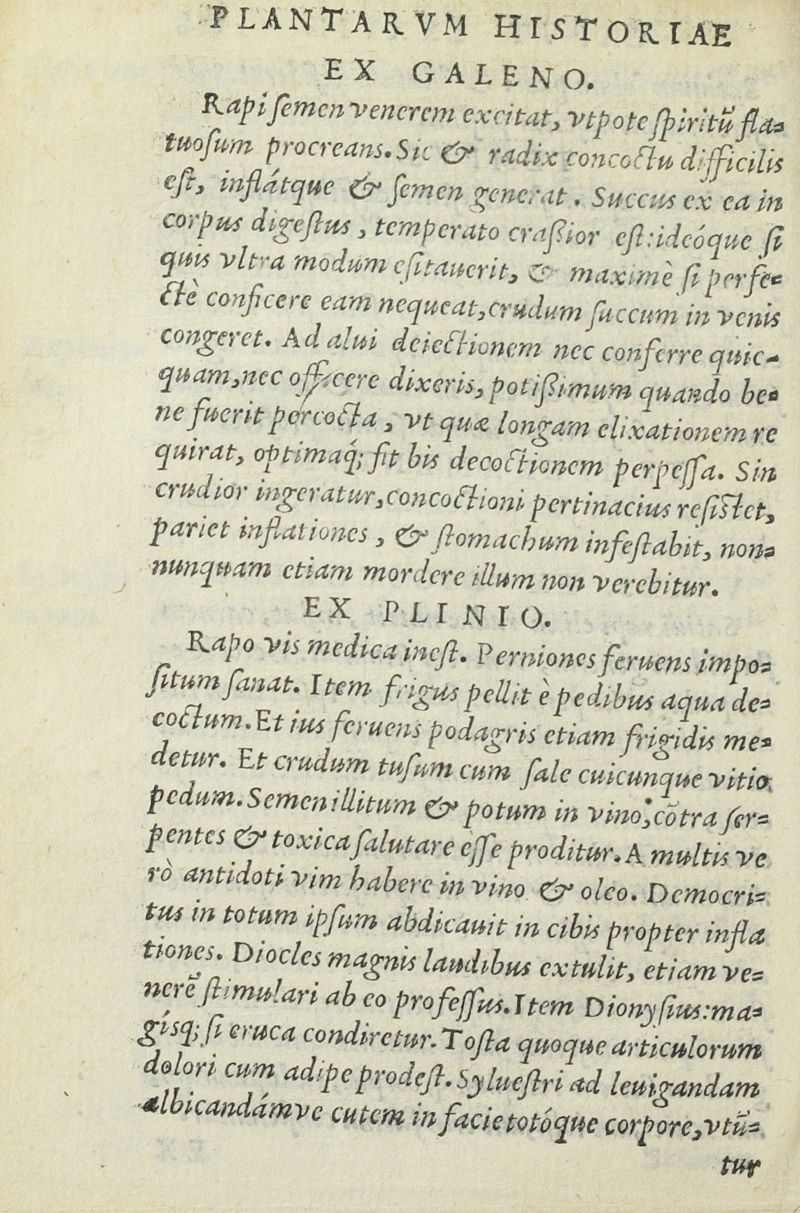 PLANTARVM HISTORIAE
EX GALENO.
Rapi ſemen venerem excitat, vtpote ſpiritū fla-
tuoſum procreans. Sic & radix concoctu difficilis
eſt, inflátque & ſemen generat. Succus ex ea in
corpus digeſtus, temperato craſsior eſt: ideóque ſi
quis vltra modum eſitauerit, & maximè ſi perfe-
ctè conficere eam nequeat, crudum ſuccum in venis
congeret. Ad alui deiectionem nec conferre quic-
quam, nec officere dixeris, potiſsimum quando be-
ne fuerit percocta, vt quæ longam elixationem re
quirat, optimaq́; fit bis decoctionem perpeſſa. Sin
crudior ingeratur, concoctioni pertinacius reſiſtet,
pariet inflationes, & ſtomachum infeſtabit, non-
nunquam etiam mordere illum non verebitur.
EX PLINIO.
Rapo vis medica ineſt. Perniones feruens impo-
ſitum ſanat. Item frigus pellit è pedibus aqua de-
coctum. Et ius feruens podagris etiam frigidis me-
detur. Et crudum tuſum cum ſale cuicunque vitio
pedum. Semen illitum & potum in vino, cōtra ſer-
pentes & toxica ſalutare eſſe proditur. A multis ve
rò antidoti vim habere in vino & oleo. Democri-
tus in totum ipſum abdicauit in cibis propter infla
tiones. Diocles magnis laudibus extulit, etiam ve-
nerē ſtimulari ab eo profeſſus. Item Dionyſius: ma-
gíſq; ſi eruca condiretur. Toſta quoque articulorum
dolori cum adipe prodeſt. Sylueſtri ad leuigandam
albicandámve cutem in facie totóque corpore, vtū-
tur